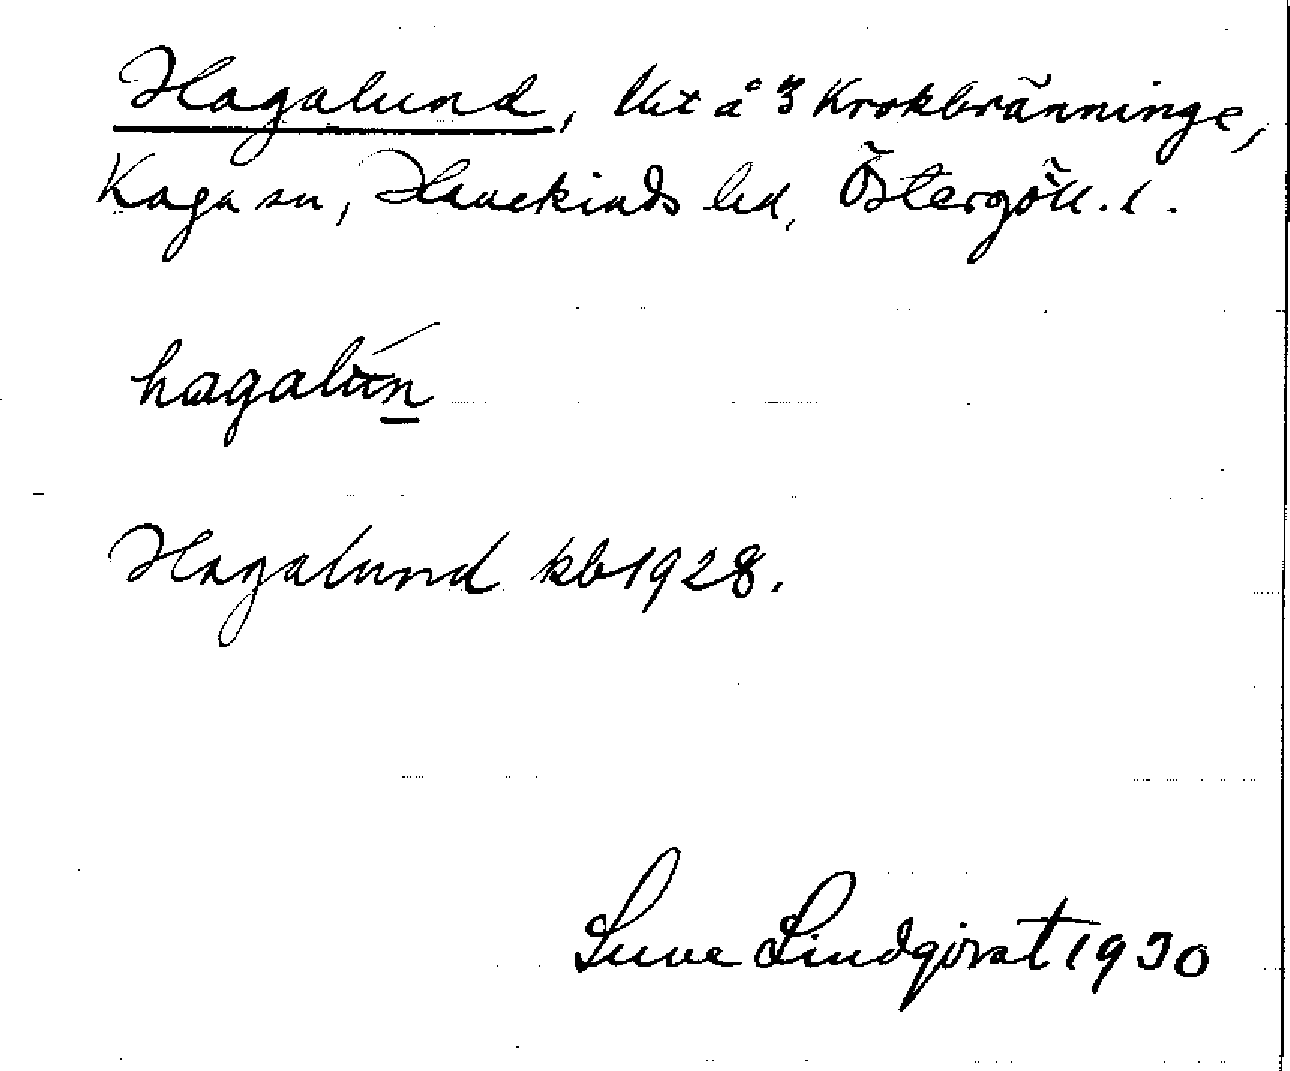 Hagalund, lht å 3 Krokbränninge,
Kaga sn, Hanekinds hd, Östergötl. l.
hagalún
Hagalund kb 1928.
Sune Lindqvist 1930